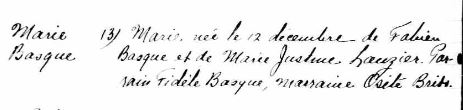 Marie 13) Marie, née le 12 decembre de Fabien
Basque Basque et de Marie Justine Lauzier Par-
rain Fidèle Basque, Marraine Osite Brits.